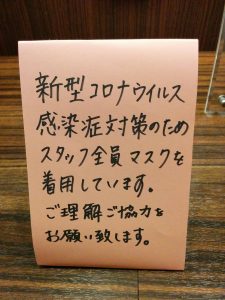 新型コロナウイルス
感染症対策のため
スタッフ全員マスクを
着用しています。
ご理解ご協力を
お願い致します。